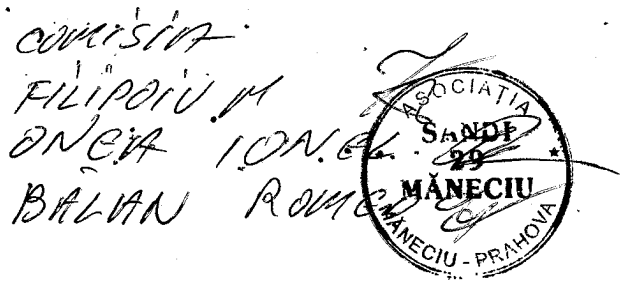 COMISIA
FILIPOIU M
ONCIA IONEL
BĂLAN ROMEO
ASOCIAȚIA
SANDI
29
MĂNECIU
MĂNECIU - PRAHOVA